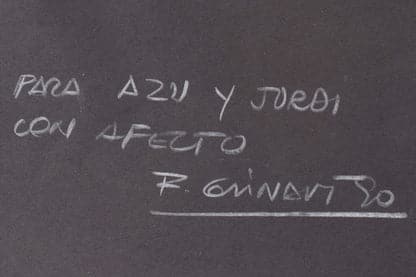 PARA AZU Y JORDI
CON AFECTO
R. GUINART 90